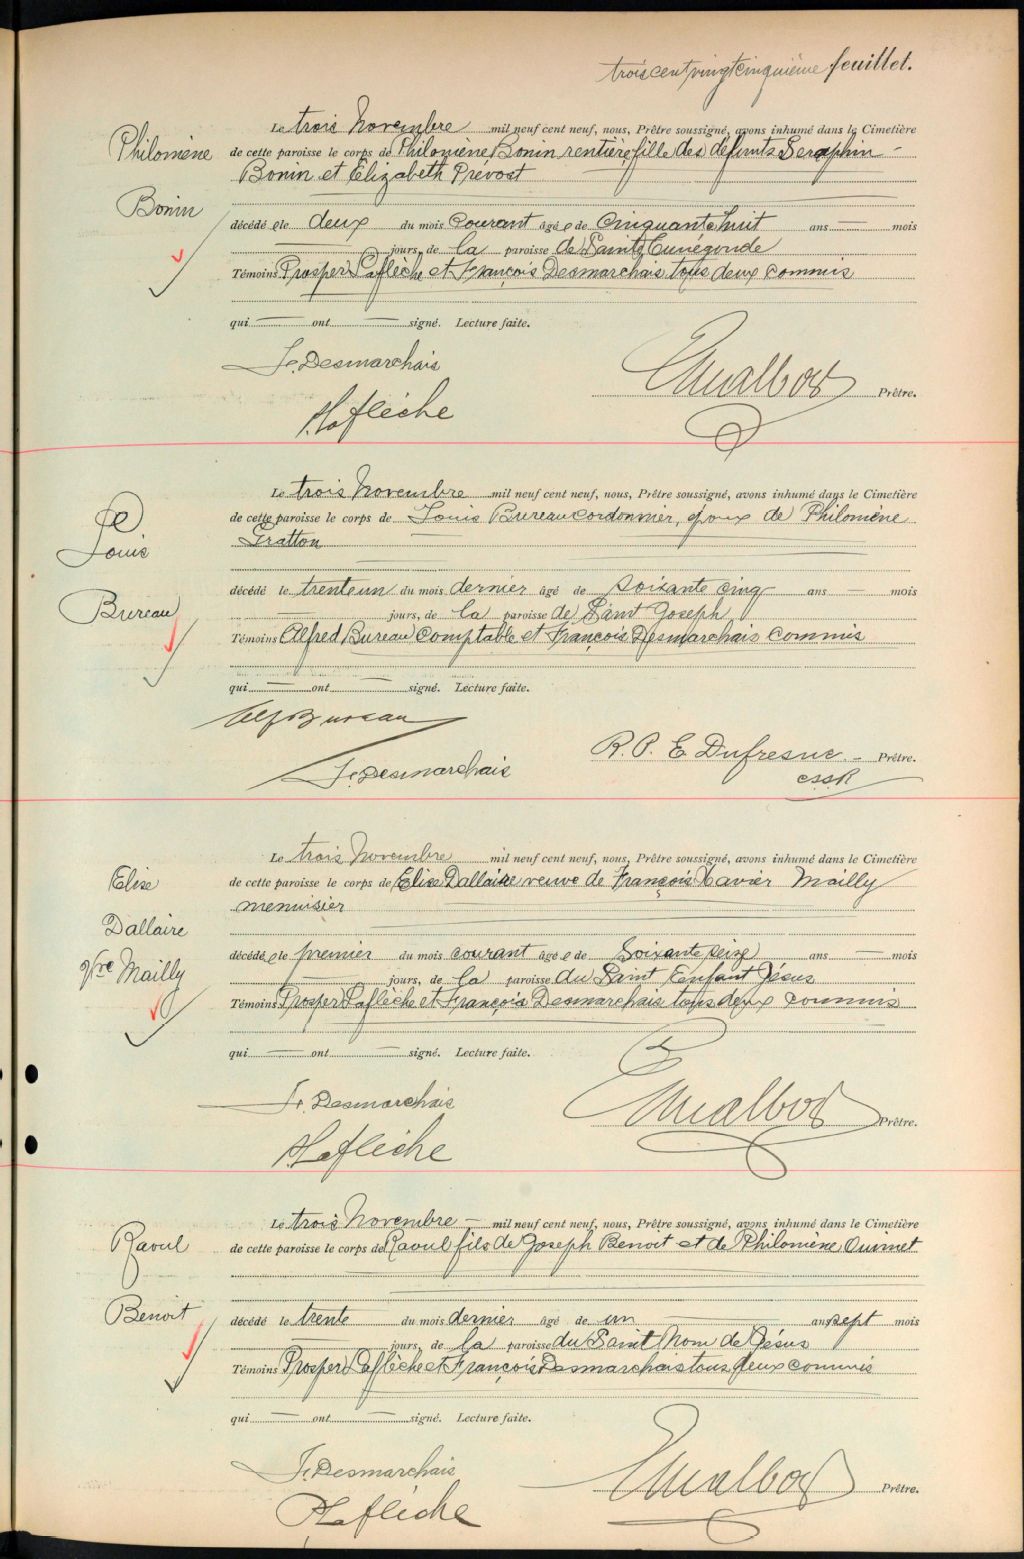 trois cent vingt cinquième feuillet.
Le trois Novembre mil neuf cent neuf, nous, Prêtre soussigné, avons inhumé dans le Cimetière
Philomène
de cette paroisse le corps de Philomène Bonin rentière fille des défunts Seraphin
Bonin et Elizabeth Prévost
Bonin
décédé e le deux du mois courant âgé e de cinquante huit ans — mois
— jours, de la paroisse de Sainte Cunégonde
Témoins Prosper Laflèche et François Desmarchais tous deux commis
qui — ont — signé. Lecture faite.
F. Desmarchais
P. Laflèche
Prêtre.
Le trois Novembre mil neuf cent neuf, nous, Prêtre soussigné, avons inhumé dans le Cimetière
de cette paroisse le corps de Louis Bureau cordonnier, époux de Philomène
Gratton
Louis
Bureau
décédé le trente un du mois dernier âgé de soixante cinq ans — mois
— jours, de la paroisse de Saint Joseph
Témoins Alfred Bureau comptable et François Desmarchais commis
qui — ont — signé. Lecture faite.
Alf Bureau
R. P. E. Dufresne Prêtre.
C.SS.R
F. Desmarchais
Le trois Novembre mil neuf cent neuf, nous, Prêtre soussigné, avons inhumé dans le Cimetière
Elise
de cette paroisse le corps de Elise Dallaire veuve de François Xavier Mailly
menuisier
Dallaire
Vve Mailly
décédé e le premier du mois courant âgé e de Soixante seize ans — mois
— jours, de la paroisse du Saint Enfant Jésus
Témoins Prosper Laflèche et François Desmarchais tous deux commis
qui — ont — signé. Lecture faite.
F. Desmarchais
Prêtre.
P. Laflèche
Le trois Novembre — mil neuf cent neuf, nous, Prêtre soussigné, avons inhumé dans le Cimetière
Raoul
de cette paroisse le corps de Raoul fils de Joseph Benoit et de Philomène Ouimet
Benoit
décédé le trente du mois dernier âgé de un an sept mois
— jours, de la paroisse du Saint Nom de Jésus
Témoins Prosper Laflèche et François Desmarchais tous deux commis
qui — ont — signé. Lecture faite.
F. Desmarchais
Prêtre.
P. Laflèche